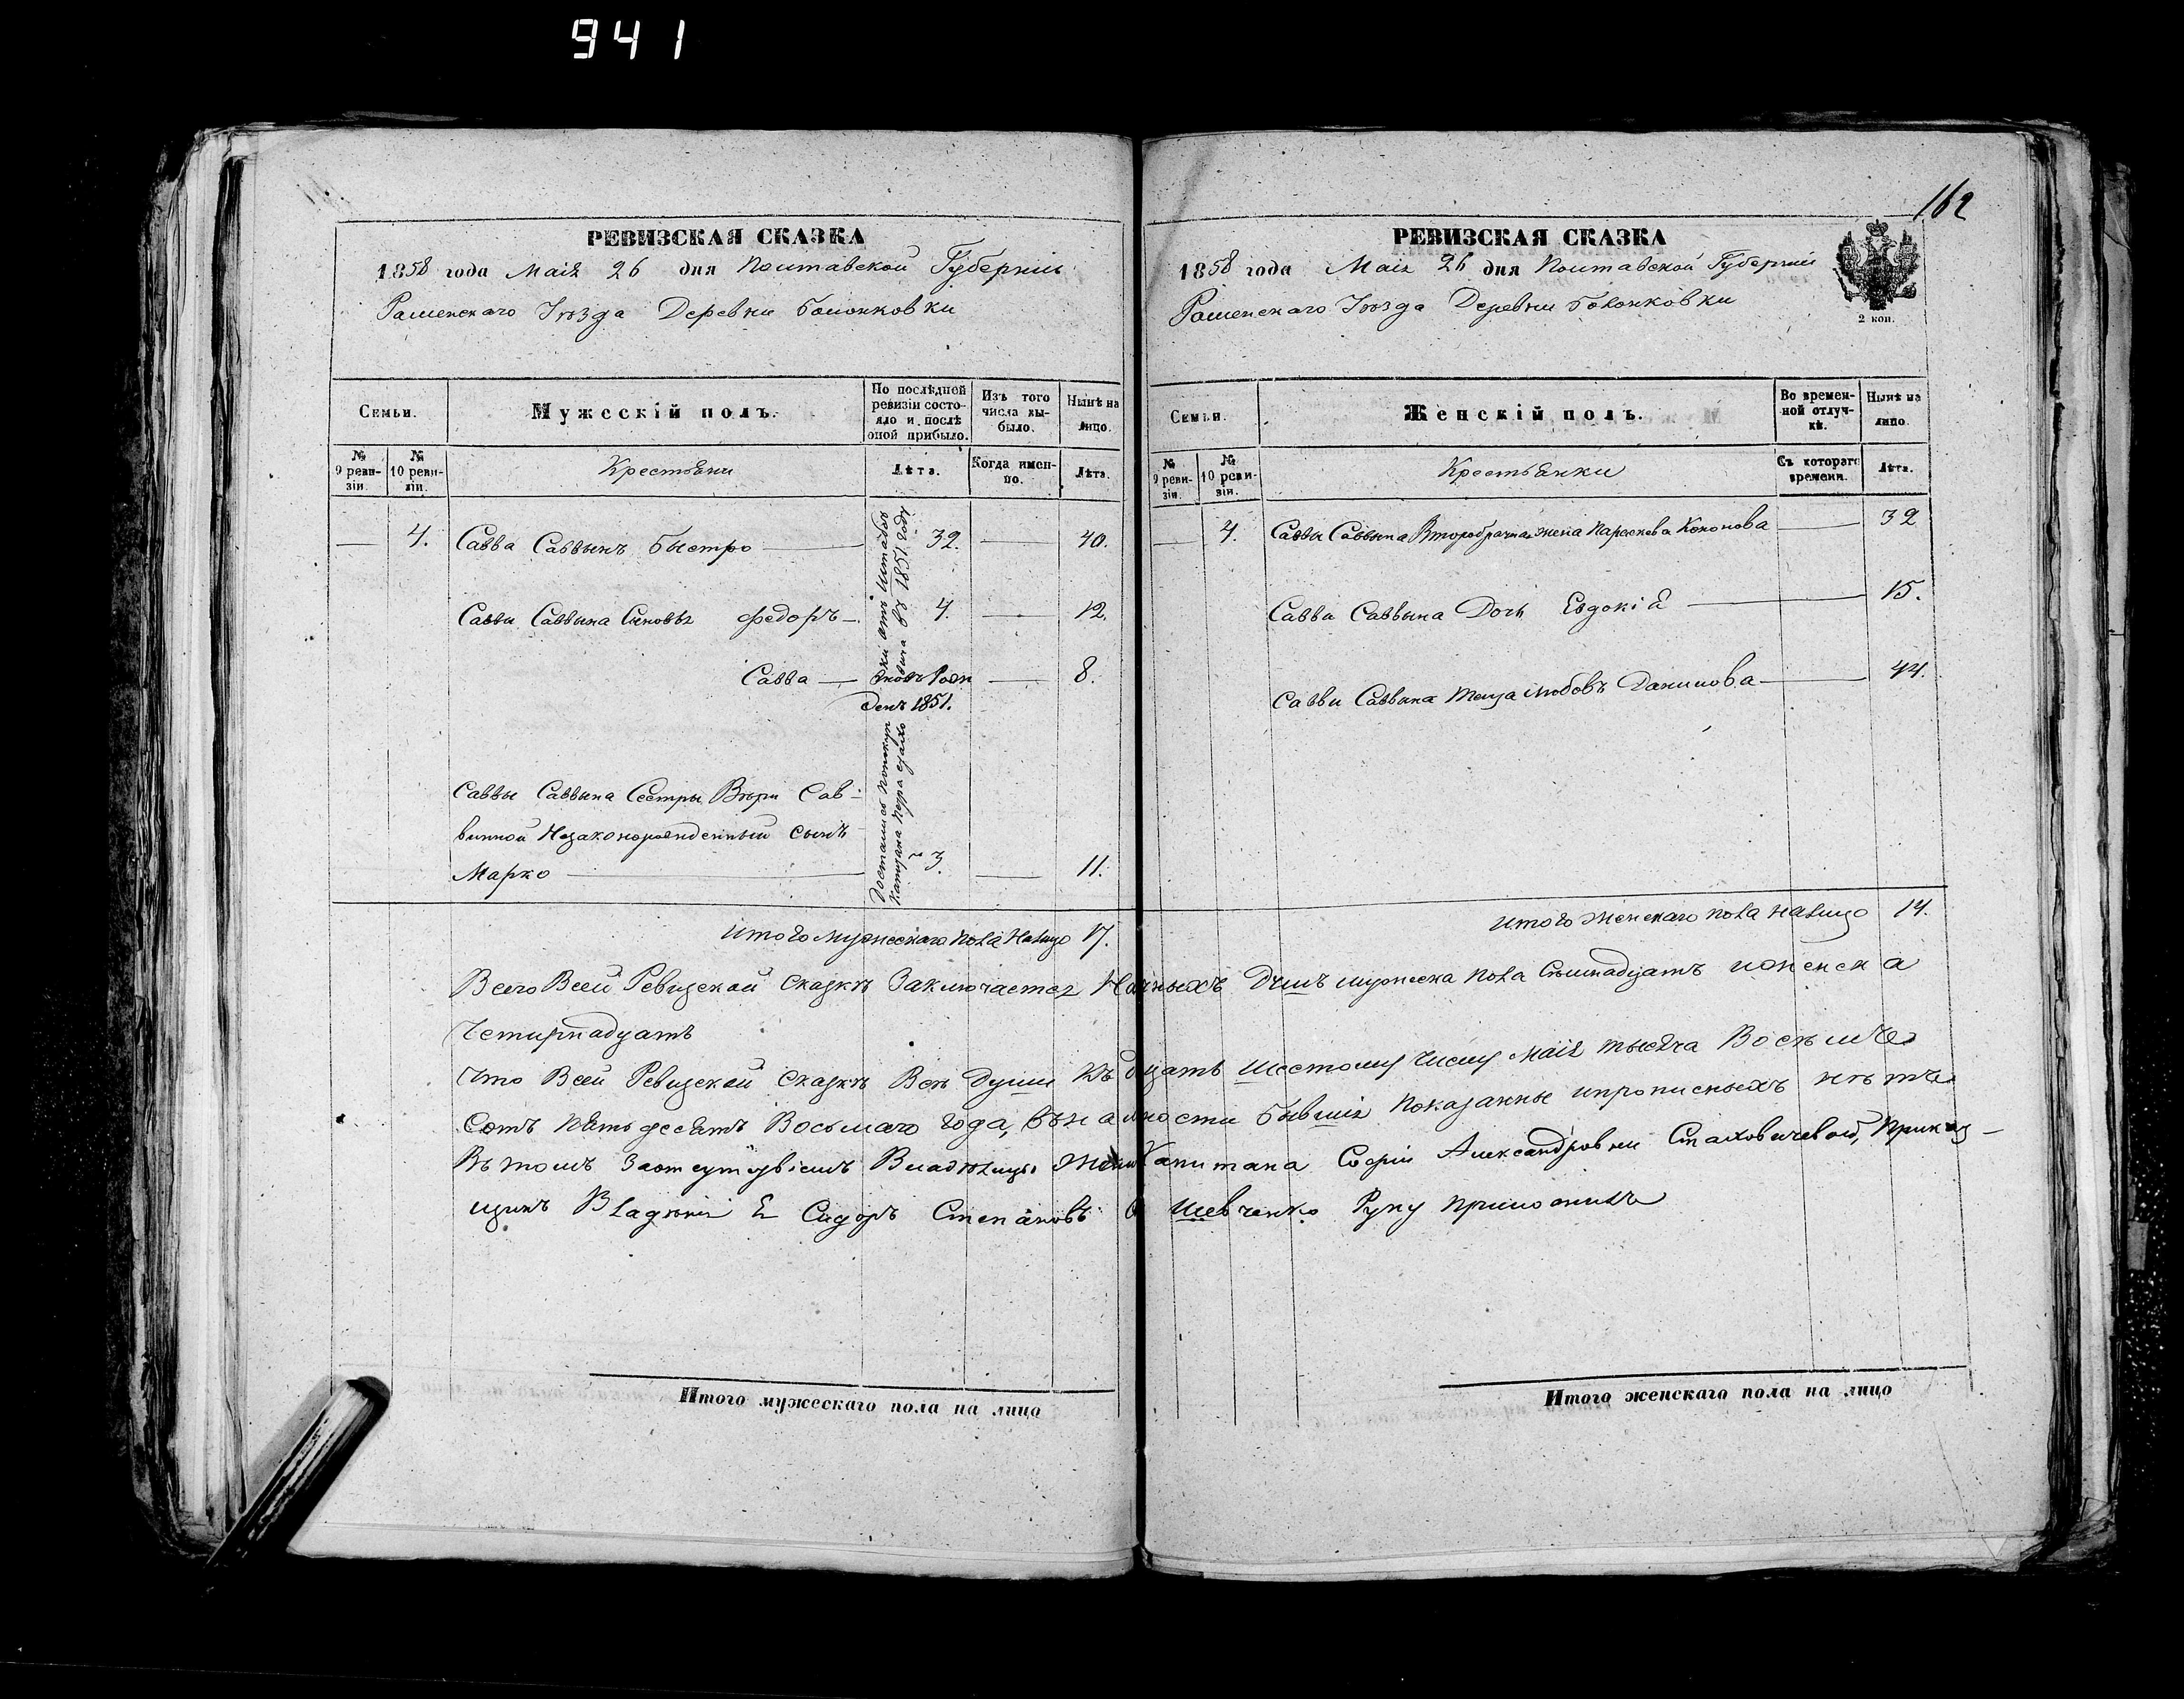 941
162
РЕВИЗСКАЯ СКАЗКА
1858 года Маія 26 дня Полтавской Губерніи
Роменскаго Уѣзда Деревни
Семьи.
Мужескій полъ.
По послѣдней ревизіи состояло и послѣ оной прибыло.
Изъ того числа выбыло.
Нынѣ на лицо.
№ 9 ревизіи.
№ 10 ревизіи.
Крестьяни
Лѣта.
Когда именно.
Лѣта.
— 4. Савва Саввынъ Быстро — 32. — 40.
Саввы Саввына Сыновья Федоръ — 4. — 12.
Савва — Вновь Рожденъ 1851. — 8.
Саввы Саввына Сестры Вѣры Сав-
винной Незаконорожденный сынъ
Марко — 3. — 11.
въ 1851 году
Итого мужескаго пола налицо 17.
РЕВИЗСКАЯ СКАЗКА
1858 года Маія 26 дня Полтавской Губерніи
Роменскаго Уѣзда Деревни
2 коп.
Семьи.
Женскій полъ.
Во временной отлучкѣ.
Нынѣ на лицо.
№ 9 ревизіи.
№ 10 ревизіи.
Крестьянки
Съ котораго времени.
Лѣта.
— 4. Саввы Саввына Второбрачная жена Параскева Кононова — 32
Саввы Саввына Дочь Евдокія — 15.
Саввы Саввына Теща Любовь Данилова — 44.
Итого женскаго пола налицо 14.
Всего Всей Ревизской сказкѣ Заключается Наличныхъ Душъ мужеска пола Семнадцать и женска
Четирнадцать
Что Всей Ревизской сказкѣ Всѣ Души Къ двадцать шестому Числу Маія тысяча Восемъ
Сотъ пятьдесятъ Восьмаго года, въ наличности бывшія показанны и прописныхъ нѣтъ
Въ томъ За отсутствіемъ Владѣлицы жены Капитана Софіи Александровни Стаховичевой, Приказ-
щикъ Владѣнія Ея Сидоръ Степановъ Шевченко Руку приложилъ
Итого мужескаго пола на лицо
Итого женскаго пола на лицо